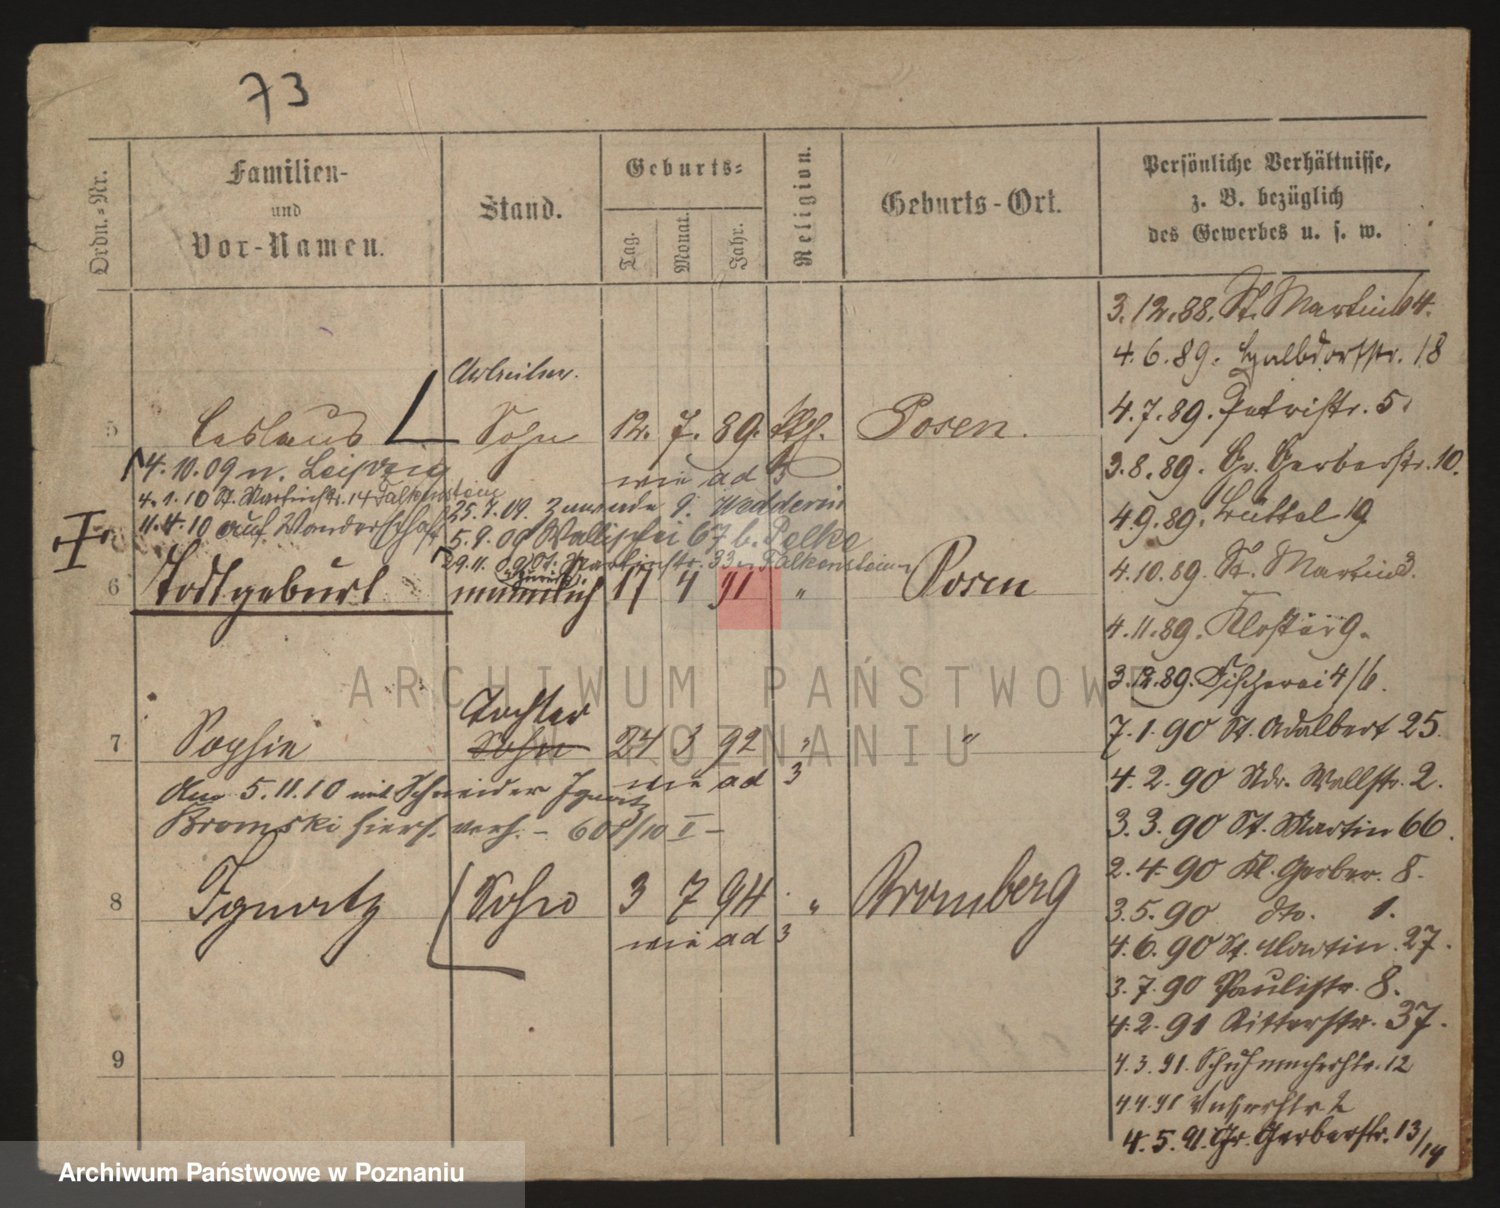 73
Ordn.-Nr.
Familien-
und
Vor-Namen.
Stand.
Geburts-
Tag.
Monat.
Jahr.
Religion.
Geburts-Ort.
Persönliche Verhältnisse,
z. B. bezüglich
des Gewerbes u. s. w.
Arbeiter.
5 Ceslaus Sohn 12. 7. 89. Kth. Posen.
wie ad 3
14.10.09 n. Leipzig
4.1.10 St. Martinstr. 14 Falkenstein
11.4.10 auf Wanderschaft
25.7.09.
5.9.09 Wallischei 67 b. Pelke
29.11.09 St. Martinstr. 33 Falkenstein
zurück
6 Todtgeburt männlich 17 4 91 " Posen
Tochter
7 Sophie Sohn 24 3 92 " "
wie ad 3
Am 5.11.10 mit Schneider Ignatz
Bromski hiers. verh. – 608/10 I –
8 Ignatz Sohn 3 7 94 " Bromberg
wie ad 3
9
3.12.88. St. Martin 64.
4.6.89. Halbdorfstr. 18
4.7.89. Petristr. 5.
3.8.89. Gr. Gerberstr. 10.
4.9.89. Büttel 19
4.10.89. St. Martin 3.
4.11.89. Klosterg.
3.12.89. Fischerei 4/6.
7.1.90 St. Adalbert 25.
4.2.90 Ndr. Wallstr. 2.
3.3.90 St. Martin 66.
2.4.90 Kl. Gerber. 8.
3.5.90 dto. 1.
4.6.90 St. Martin. 27.
3.7.90 Paulistr. 8.
4.2.91 Ritterstr. 37.
4.3.91. Schuhmacherstr. 12
4.4.91
4.5.91. Gr. Gerberstr. 13/14
ARCHIWUM PAŃSTWOWE
W POZNANIU
Archiwum Państwowe w Poznaniu